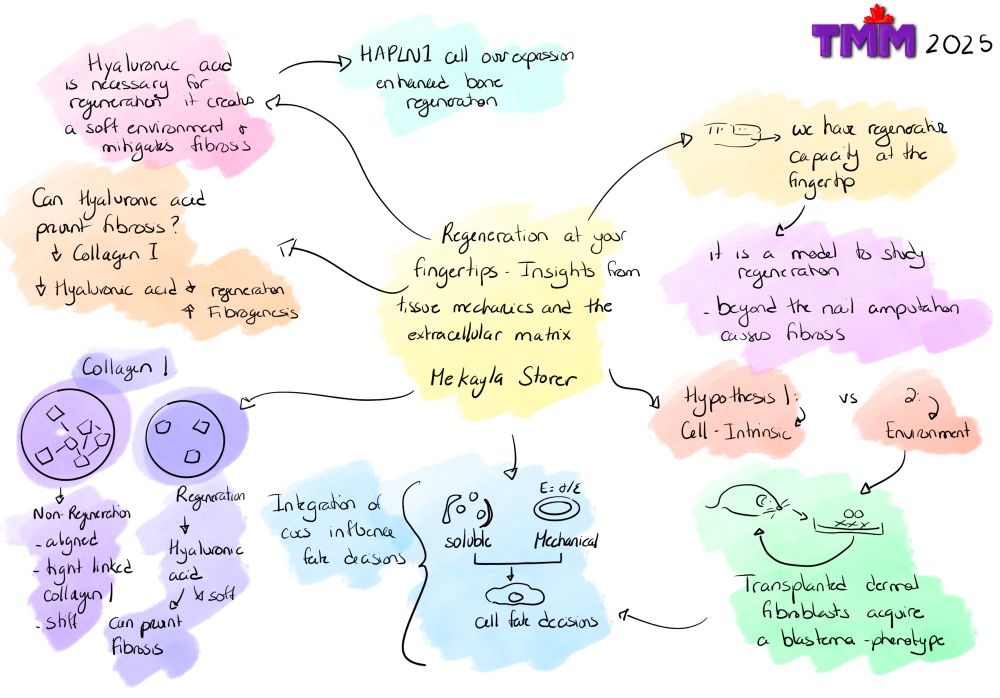 TMM 2025
Hyaluronic acid
is necessary for
regeneration it creates
a soft environment &
mitigates fibrosis
HAPLN1 cell overexpression
enhanced bone
regeneration
we have regenerative
capacity at the
fingertip
it is a model to study
regeneration
- beyond the nail amputation
causes fibrosis
Can Hyaluronic acid
prevent fibrosis?
↓ Collagen I
↓ Hyaluronic acid ↓ regeneration
↑ Fibrogenesis
Regeneration at your
fingertips - Insights from
tissue mechanics and the
extracellular matrix
Mekayla Storer
Hypothesis 1: vs 2:
Cell-Intrinsic
Environment
Collagen I
Non-Regeneration
- aligned
- tight linked
collagen I
- stiff
Regeneration
Hyaluronic
acid
↘ soft
can prevent
Fibrosis
Integration of
cues influence
fate decisions
E=σ/ε
soluble
Mechanical
cell fate decisions
Transplanted dermal
fibroblasts acquire
a blastema-phenotype